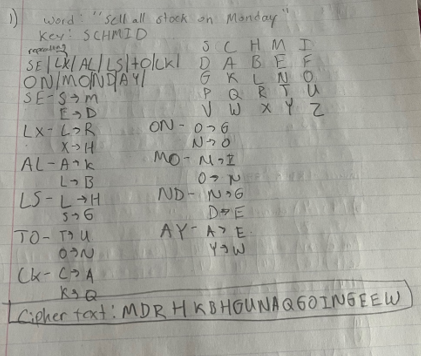 1) Word: "Sell all stock on Monday"
Key: SCHMID
repeating
SE|LX|AL|LS|TO|CK|
ON|MO|ND|AY|
S C H M I
D A B E F
G K L N O
P Q R T U
V W X Y Z
SE - S→M
E→D
LX - L→R
X→H
AL - A→K
L→B
LS - L→H
S→G
TO - T→U
O→N
CK - C→A
K→Q
ON - O→G
N→O
MO - M→I
O→N
ND - N→G
D→E
AY - A→E
Y→W
Cipher text: MDRHKBHGUNAQGOINGEEW